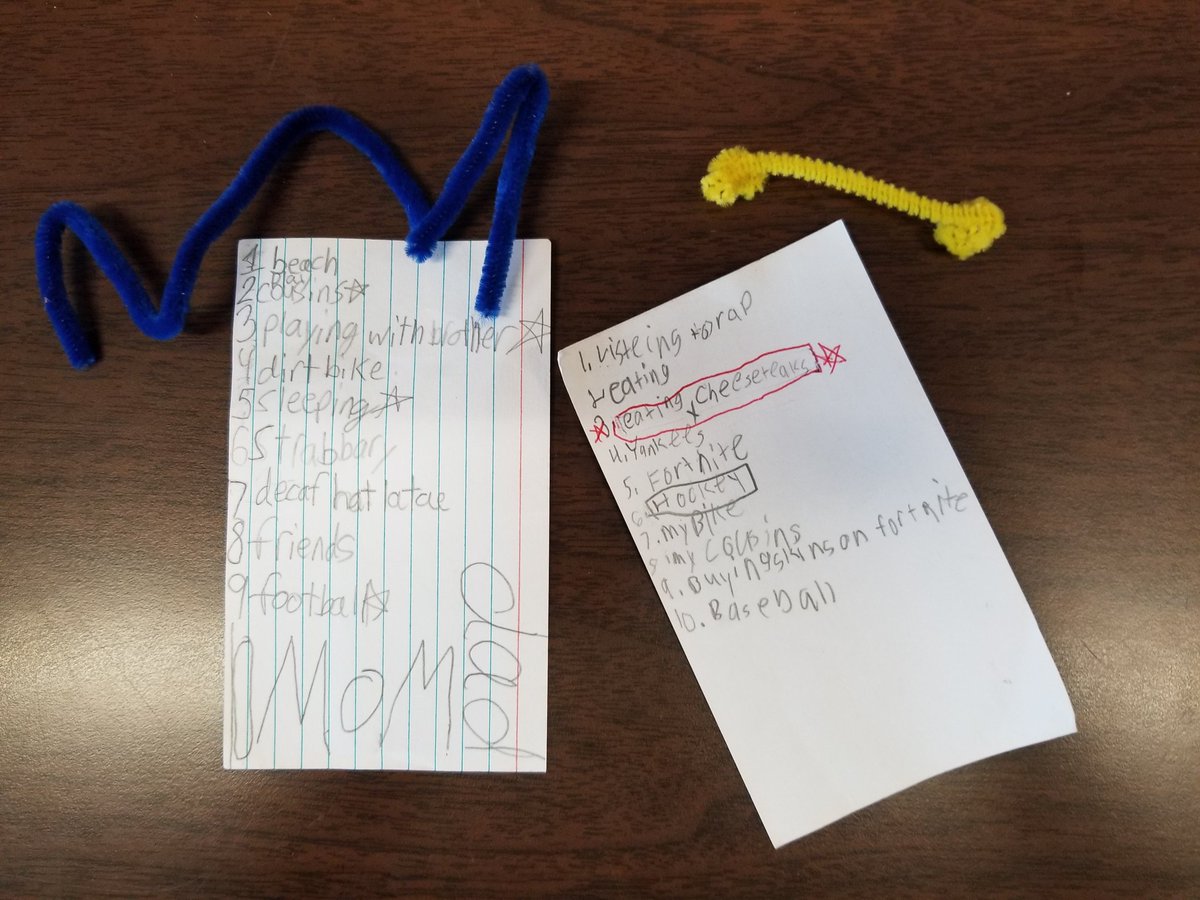 1 beach
2 cousins
3 playing with brother
4 dirt bike
5 sleeping
6 Strabbary
7 decaf hat latae
8 friends
9 football
10 MoM
dad
1. Listeing to rap
2 eating
3. eating Cheeseteaks
4. Yankees
5. Fortnite
6. Hockey
7. my Bike
8 my Cousins
9. Buying skins on fortnite
10. Baseball